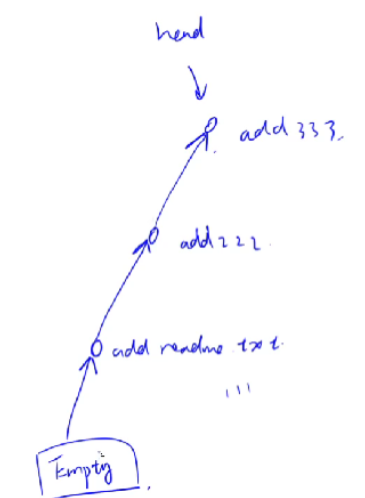 head
add 333.
add 222
add readme.txt.
111
Empty